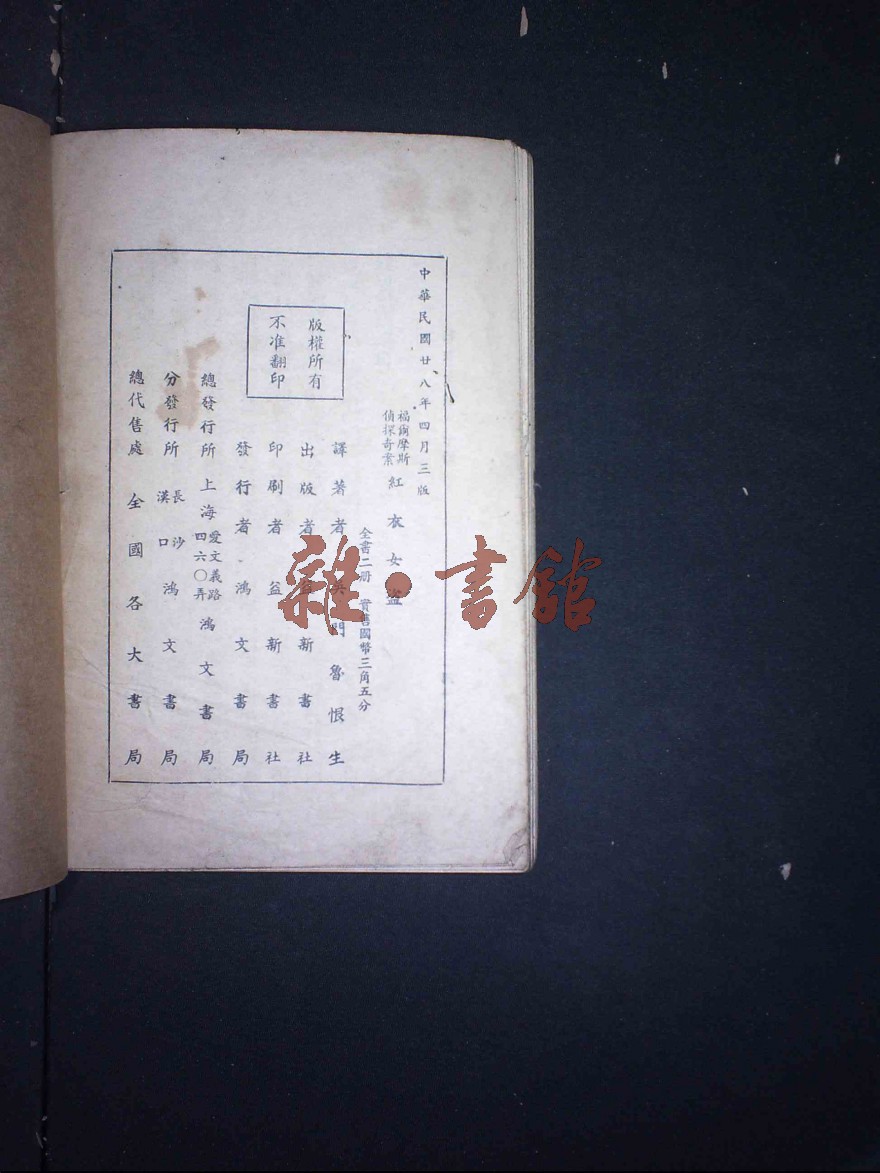 中華民國廿八年四月三版
福爾摩斯
偵探奇案
紅衣女盜
全書二册 實售國幣三角五分
版權所有
不准翻印
譯著者 吳門魯恨生
出版者 益新書社
印刷者 益新書社
發行者 鴻文書局
總發行所 上海 愛文義路 四六〇弄 鴻文書局
分發行所 長沙 漢口 鴻文書局
總代售處 全國各大書局
雜·書館